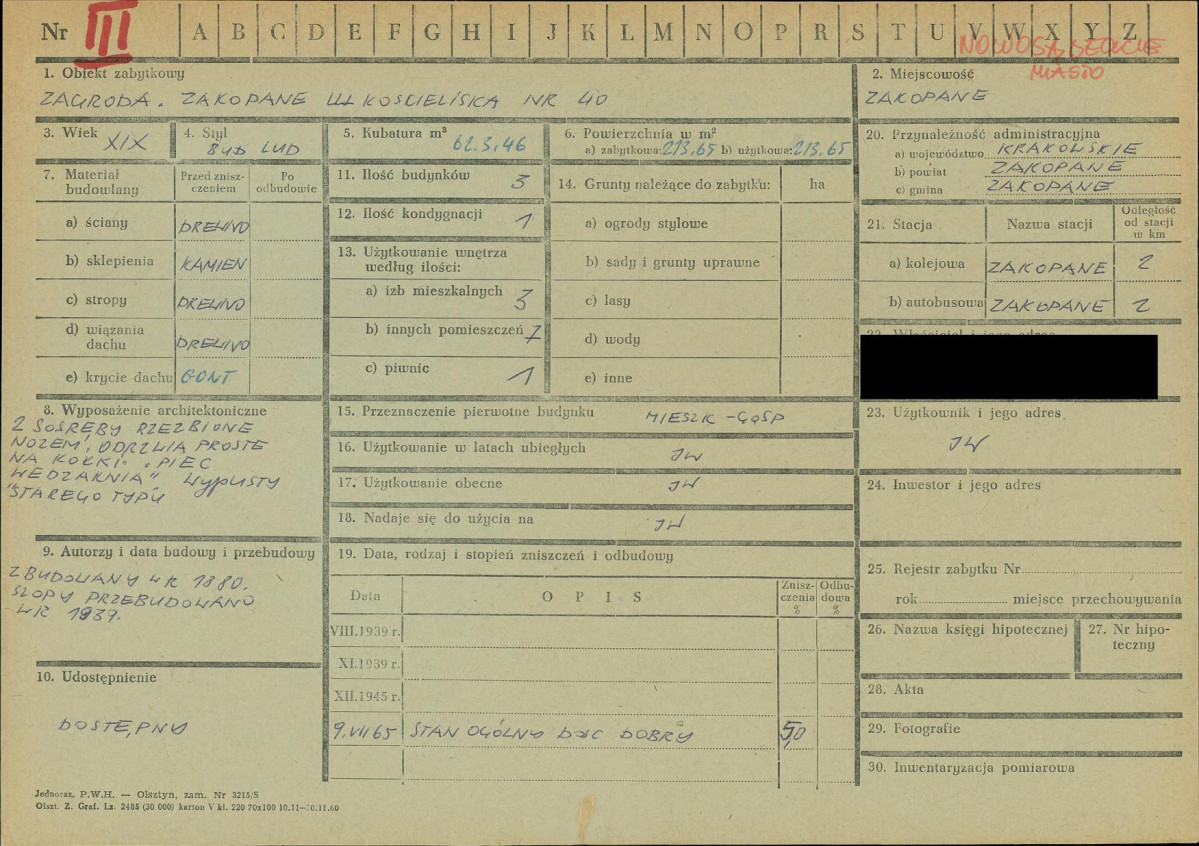 Nr III A B C D E F G H I J K L M N O P R S T U V W X Y Z
NOWOSĄDECKIE
MIASTO
1. Obiekt zabytkowy
ZAGRODA. ZAKOPANE UL KOSCIELISKA NR 40
2. Miejscowość
ZAKOPANE
3. Wiek XIX
4. Styl
BUD LUD
5. Kubatura m³
62.3.46
6. Powierzchnia w m²
a) zabytkowa: 213,65 b) użytkowa: 213,65
7. Materiał budowlany
Przed zniszczeniem
Po odbudowie
a) ściany DREWNO
b) sklepienia KAMIEN
c) stropy DREWNO
d) wiązania dachu DREWNO
e) krycie dachu GONT
11. Ilość budynków 3
12. Ilość kondygnacji 1
13. Użytkowanie wnętrza
według ilości:
a) izb mieszkalnych 3
b) innych pomieszczeń 7
c) piwnic 1
14. Grunty należące do zabytku: ha
a) ogrody stylowe
b) sady i grunty uprawne
c) lasy
d) wody
e) inne
20. Przynależność administracyjna
a) województwo KRAKOWSKIE
b) powiat ZAKOPANE
c) gmina ZAKOPANE
21. Stacja
Nazwa stacji
Odległość od stacji w km
a) kolejowa ZAKOPANE 2
b) autobusowa ZAKOPANE 2
8. Wyposażenie architektoniczne
2 SOSREBY RZEZBIONE
NOZEM, ODRZWIA PROSTE
NA KOŁKI. "PIEC
WEDZARNIA" WYPUSTY
STAREGO TYPU
15. Przeznaczenie pierwotne budynku MIESZK-GOSP
16. Użytkowanie w latach ubiegłych JW
17. Użytkowanie obecne JW
18. Nadaje się do użycia na JW
23. Użytkownik i jego adres
JW
24. Inwestor i jego adres
9. Autorzy i data budowy i przebudowy
ZBUDOWANY W R 1880.
SZOPY PRZEBUDOWANO
W R 1939.
19. Data, rodzaj i stopień zniszczeń i odbudowy
Data OPIS Zniszczenia % Odbudowa %
VIII.1939 r.
XI.1939 r.
XII.1945 r.
9.VII 65 STAN OGÓLNY DOSC DOBRY 50
25. Rejestr zabytku Nr
rok miejsce przechowywania
26. Nazwa księgi hipotecznej
27. Nr hipoteczny
28. Akta
29. Fotografie
30. Inwentaryzacja pomiarowa
10. Udostępnienie
DOSTĘPNY
Jednoraz. P.W.H. — Olsztyn, zam. Nr 3215/S
Olszt. Z. Graf. Lz. 2485 (30 000) karton V kl. 220 70x100 10.11—30.11.60